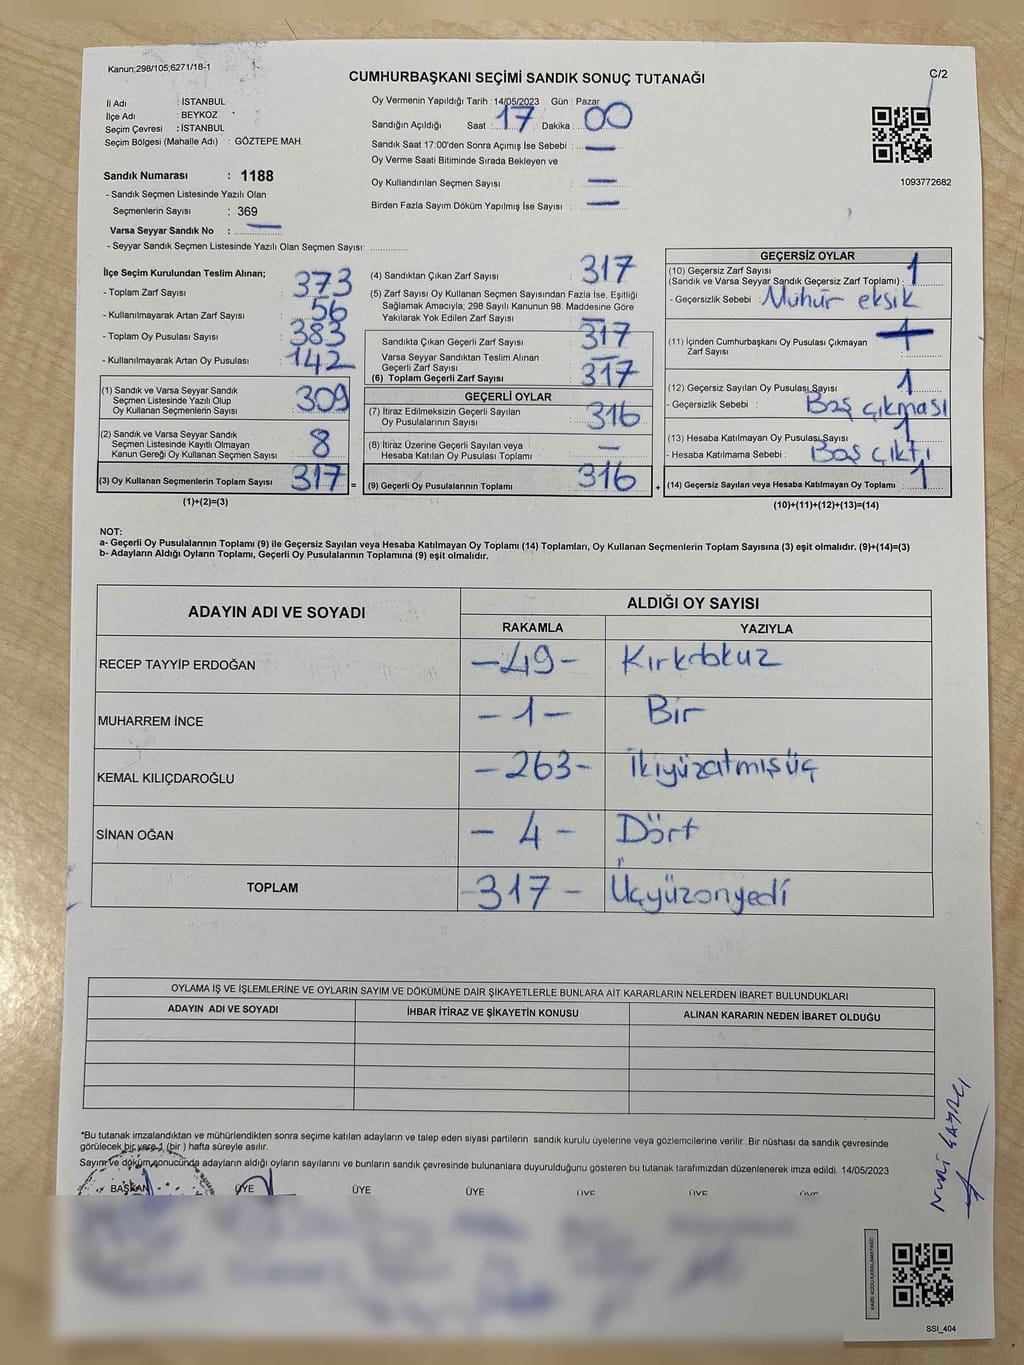 Kanun;298/105;6271/18-1
CUMHURBAŞKANI SEÇİMİ SANDIK SONUÇ TUTANAĞI
C/2
İl Adı : İSTANBUL
İlçe Adı : BEYKOZ
Seçim Çevresi : İSTANBUL
Seçim Bölgesi (Mahalle Adı) : GÖZTEPE MAH.
Oy Vermenin Yapıldığı Tarih : 14/05/2023 Gün : Pazar
Sandığın Açıldığı Saat : 17 Dakika : 00
Sandık Saat 17:00'den Sonra Açımış İse Sebebi : —
Oy Verme Saati Bitiminde Sırada Bekleyen ve
Oy Kullandırılan Seçmen Sayısı : —
Birden Fazla Sayım Döküm Yapılmış İse Sayısı : —
1093772682
Sandık Numarası : 1188
- Sandık Seçmen Listesinde Yazılı Olan
Seçmenlerin Sayısı : 369
Varsa Seyyar Sandık No : —
- Seyyar Sandık Seçmen Listesinde Yazılı Olan Seçmen Sayısı: ..............
İlçe Seçim Kurulundan Teslim Alınan;
- Toplam Zarf Sayısı 373
- Kullanılmayarak Artan Zarf Sayısı 56
- Toplam Oy Pusulası Sayısı 383
- Kullanılmayarak Artan Oy Pusulası 142
(1) Sandık ve Varsa Seyyar Sandık
Seçmen Listesinde Yazılı Olup
Oy Kullanan Seçmenlerin Sayısı 309
(2) Sandık ve Varsa Seyyar Sandık
Seçmen Listesinde Kayıtlı Olmayan
Kanun Gereği Oy Kullanan Seçmen Sayısı 8
(3) Oy Kullanan Seçmenlerin Toplam Sayısı 317 =
(1)+(2)=(3)
(4) Sandıktan Çıkan Zarf Sayısı 317
(5) Zarf Sayısı Oy Kullanan Seçmen Sayısından Fazla İse, Eşitliği
Sağlamak Amacıyla; 298 Sayılı Kanunun 98. Maddesine Göre
Yakılarak Yok Edilen Zarf Sayısı —
Sandıkta Çıkan Geçerli Zarf Sayısı 317
Varsa Seyyar Sandıktan Teslim Alınan
Geçerli Zarf Sayısı —
(6) Toplam Geçerli Zarf Sayısı 317
GEÇERLİ OYLAR
(7) İtiraz Edilmeksizin Geçerli Sayılan
Oy Pusulalarının Sayısı 316
(8) İtiraz Üzerine Geçerli Sayılan veya
Hesaba Katılan Oy Pusulası Toplamı —
(9) Geçerli Oy Pusulalarının Toplamı 316 +
GEÇERSİZ OYLAR
(10) Geçersiz Zarf Sayısı
(Sandık ve Varsa Seyyar Sandık Geçersiz Zarf Toplamı) : 1
- Geçersizlik Sebebi : Mühür eksik
(11) İçinden Cumhurbaşkanı Oy Pusulası Çıkmayan
Zarf Sayısı
(12) Geçersiz Sayılan Oy Pusulası Sayısı 1
- Geçersizlik Sebebi : Boş çıkması
(13) Hesaba Katılmayan Oy Pusulası Sayısı 1
- Hesaba Katılmama Sebebi : Boş çıktı
(14) Geçersiz Sayılan veya Hesaba Katılmayan Oy Toplamı : 1
(10)+(11)+(12)+(13)=(14)
NOT:
a- Geçerli Oy Pusulalarının Toplamı (9) ile Geçersiz Sayılan veya Hesaba Katılmayan Oy Toplamı (14) Toplamları, Oy Kullanan Seçmenlerin Toplam Sayısına (3) eşit olmalıdır. (9)+(14)=(3)
b- Adayların Aldığı Oyların Toplamı, Geçerli Oy Pusulalarının Toplamına (9) eşit olmalıdır.
ADAYIN ADI VE SOYADI ALDIĞI OY SAYISI
RAKAMLA YAZIYLA
RECEP TAYYİP ERDOĞAN -49- Kırkdokuz
MUHARREM İNCE -1- Bir
KEMAL KILIÇDAROĞLU -263- İkiyüzatmışüç
SİNAN OĞAN -4- Dört
TOPLAM -317- Üçyüzonyedi
OYLAMA İŞ VE İŞLEMLERİNE VE OYLARIN SAYIM VE DÖKÜMÜNE DAİR ŞİKAYETLERLE BUNLARA AİT KARARLARIN NELERDEN İBARET BULUNDUKLARI
ADAYIN ADI VE SOYADI İHBAR İTİRAZ VE ŞİKAYETİN KONUSU ALINAN KARARIN NEDEN İBARET OLDUĞU
*Bu tutanak imzalandıktan ve mühürlendikten sonra seçime katılan adayların ve talep eden siyasi partilerin sandık kurulu üyelerine veya gözlemcilerine verilir .Bir nüshası da sandık çevresinde
görülecek bir yere 1 (bir ) hafta süreyle asılır.
Sayım ve döküm sonucunda adayların aldığı oyların sayılarını ve bunların sandık çevresinde bulunanlara duyurulduğunu gösteren bu tutanak tarafımızdan düzenlenerek imza edildi. 14/05/2023
BAŞKAN ÜYE ÜYE ÜYE ÜYE ÜYE ÜYE
SSI_404